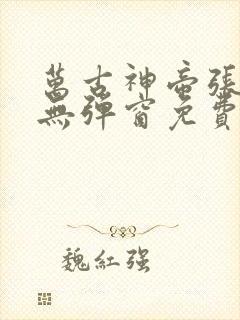 萬古神帝張
無彈窗免費
魏紅强